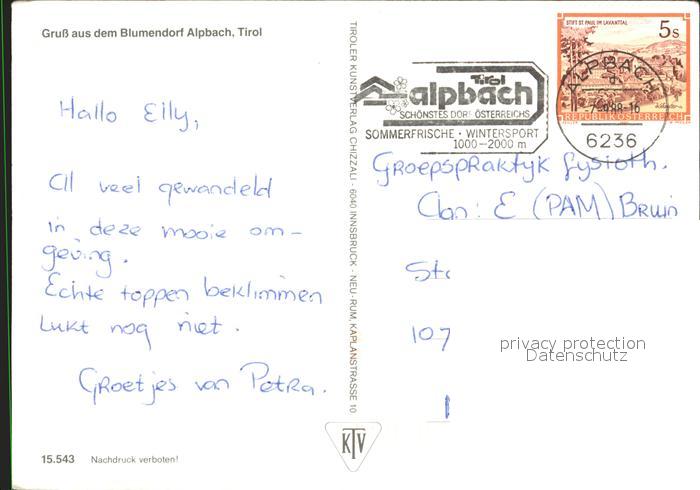 Gruß aus dem Blumendorf Alpbach, Tirol
Hallo Elly,
Al veel gewandeld
in deze mooie om-
geving.
Echte toppen beklimmen
lukt nog niet.
Groetjes van Petra.
15.543 Nachdruck verboten!
TIROLER KUNSTVERLAG CHIZZALI · 6040 INNSBRUCK - NEU-RUM, KAPLANSTRASSE 10
KTV
Tirol
alpbach
SCHÖNSTES DORF ÖSTERREICHS
SOMMERFRISCHE · WINTERSPORT
1000-2000 m
STIFT ST. PAUL IM LAVANTTAL
5s
REPUBLIK ÖSTERREICH
ALPBACH
88-16
6236
Groepspraktyk fysioth.
Aan: E (PAM) Bruin
St
107
privacy protection
Datenschutz